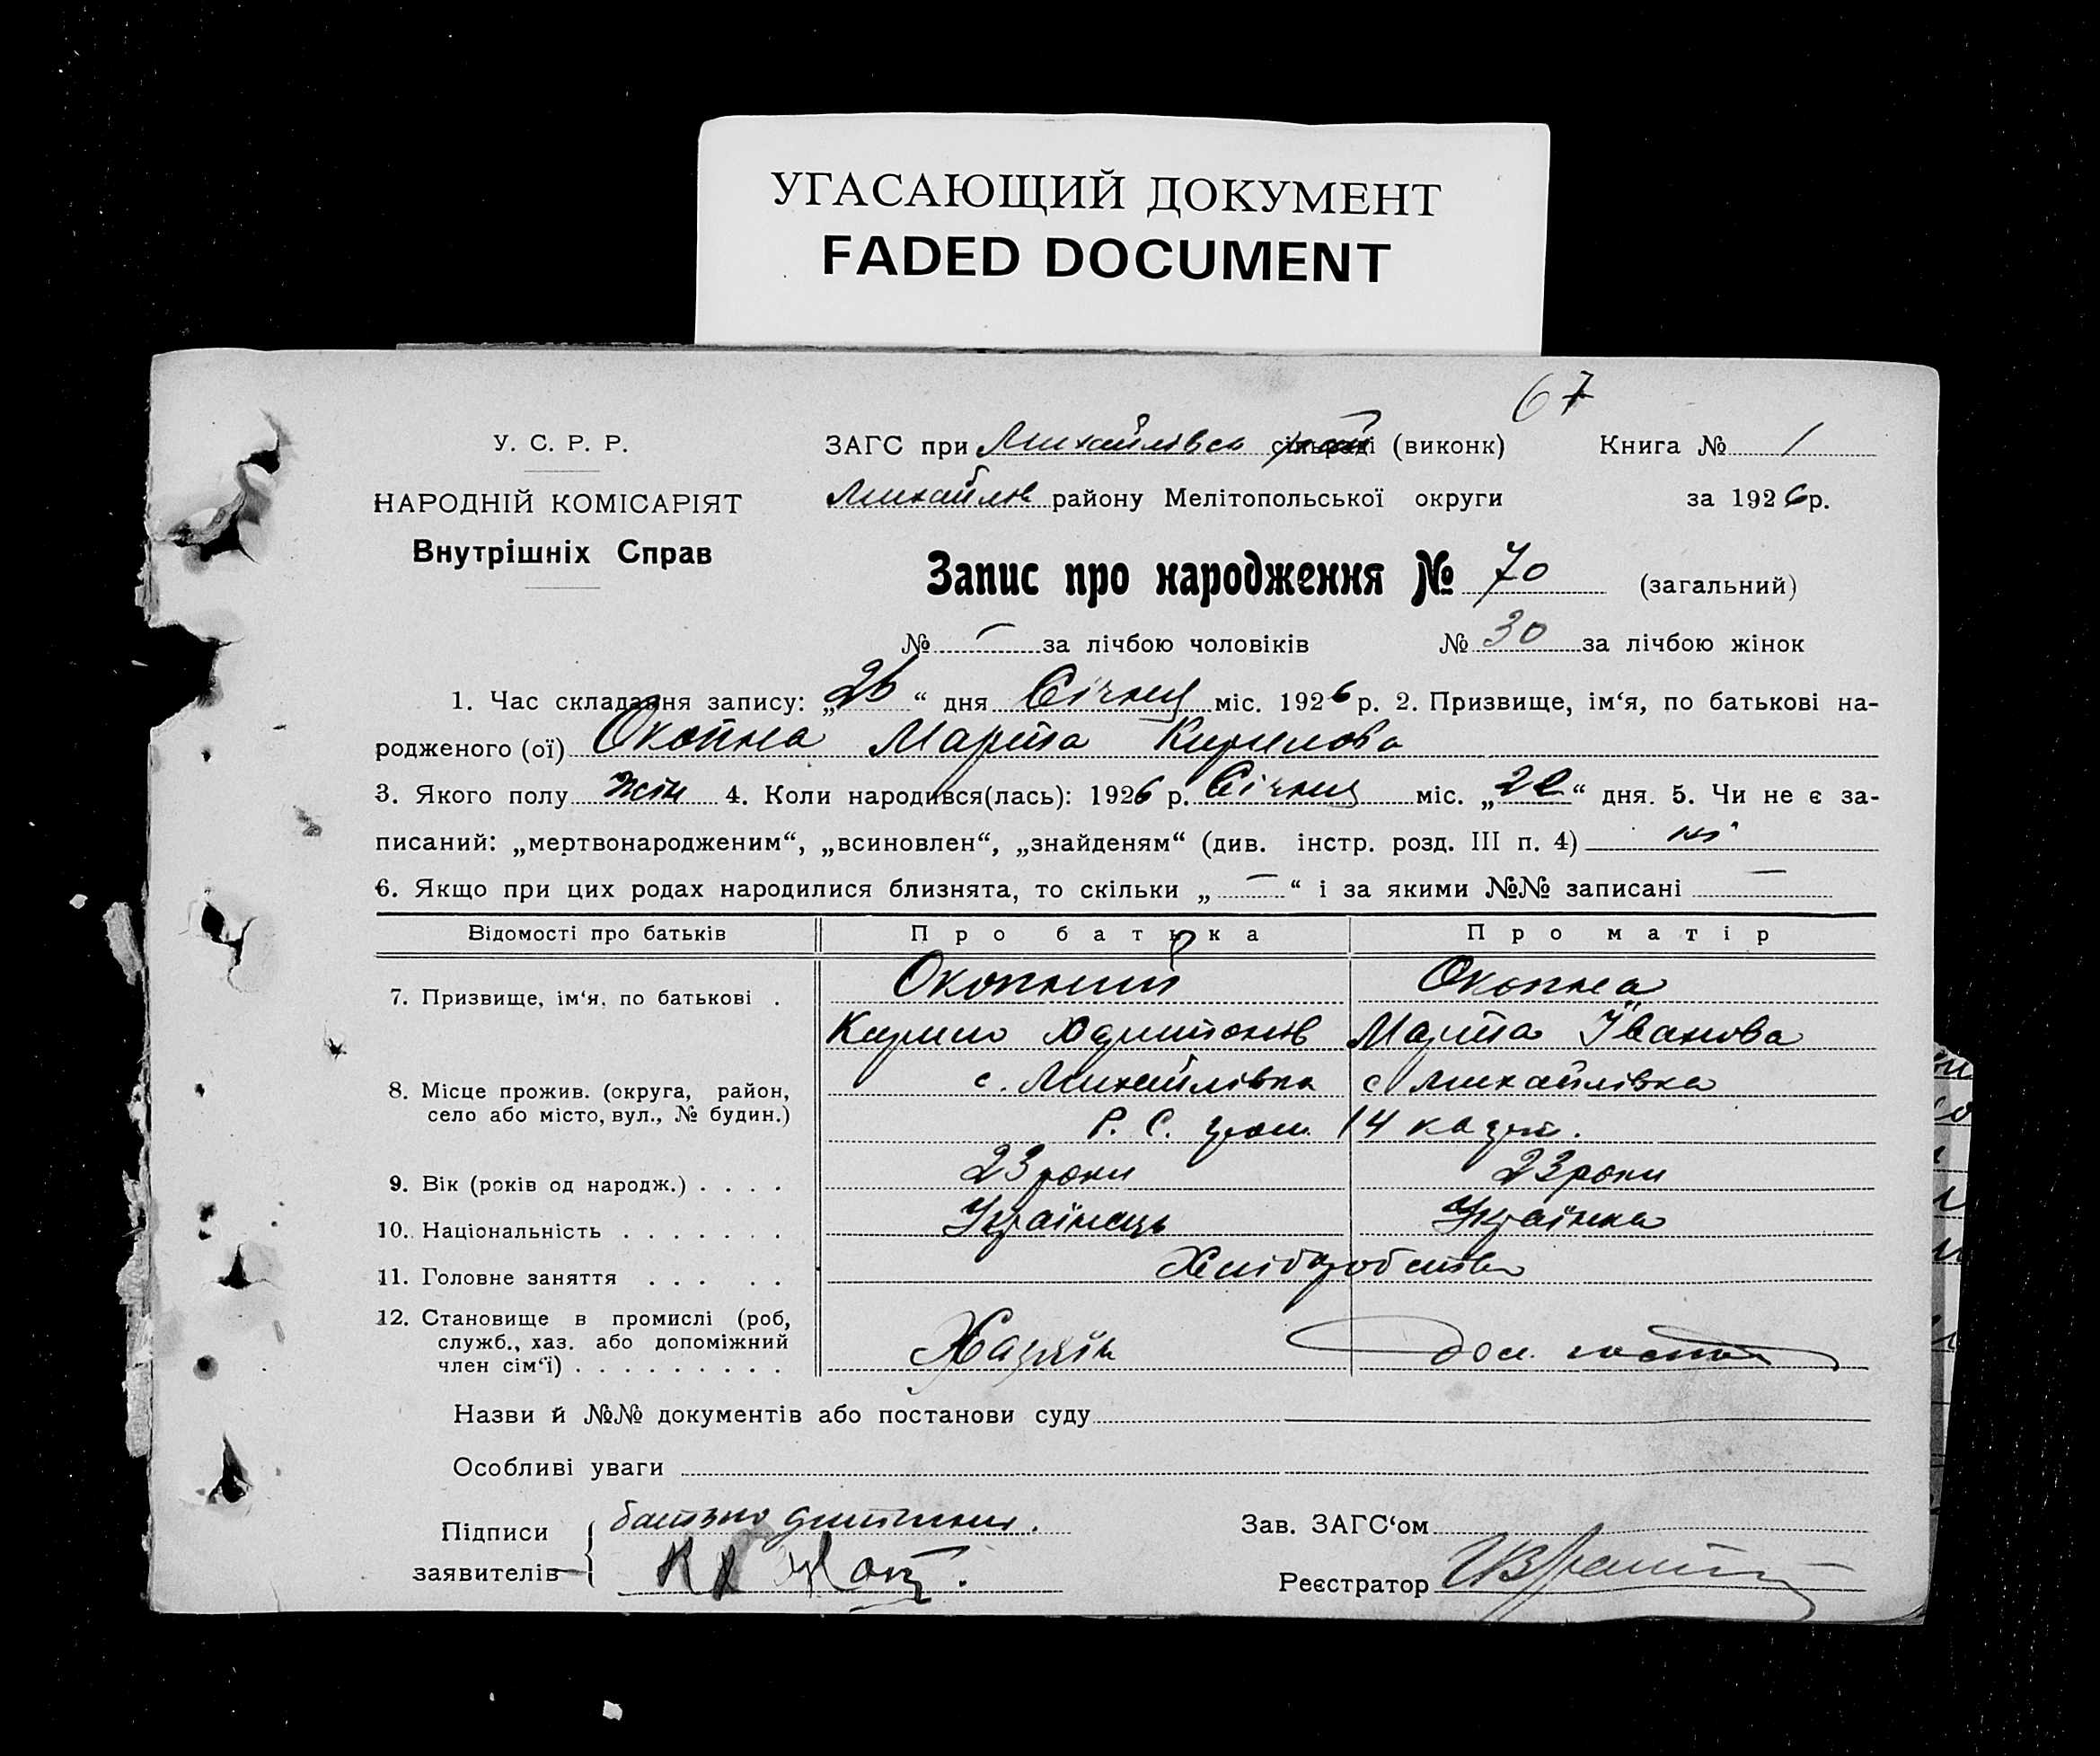 УГАСАЮЩИЙ ДОКУМЕНТ
FADED DOCUMENT
67
У. С. Р. Р.
НАРОДНІЙ КОМІСАРІЯТ
Внутрішніх Справ
ЗАГС при Михайлівск (виконк) Книга № 1
Михайлов району Мелітопольської округи за 1926 р.
Запис про народження № 70 (загальний)
№ — за лічбою чоловіків № 30 за лічбою жінок
1. Час складання запису: „26“ дня Січня міс. 1926 р. 2. Призвище, ім‘я, по батькові на-
родженого (ої) Окопна Марта Кирилова
3. Якого полу жін 4. Коли народився(лась): 1926 р. Січня міс. „22“ дня. 5. Чи не є за-
писаний: „мертвонародженим“, „всиновлен“, „знайденям“ (див. інстр. розд. III п. 4) ні
6. Якщо при цих родах народилися близнята, то скільки „—“ і за якими №№ записані —
Відомості про батьків Про батька Про матір
7. Призвище, ім‘я, по батькові . Окопний Окопна
Кирило Харитонів Марта Іванова
8. Місце прожив. (округа, район, село або місто, вул., № будин.) с. Михайлівка с Михайлівка
Р. С. 14
9. Вік (років од народж.) . . . . 23 роки 23 роки
10. Національність . . . . . . . Українець Українка
11. Головне заняття . . . . . Хліборобство
12. Становище в промислі (роб, служб., хаз. або допоміжний член сім‘ї) . . . . . . . . . Хазяїн дом.
Назви й №№ документів або постанови суду
Особливі уваги
Підписи заявителів батько дитини.
Зав. ЗАГС‘ом
Реєстратор